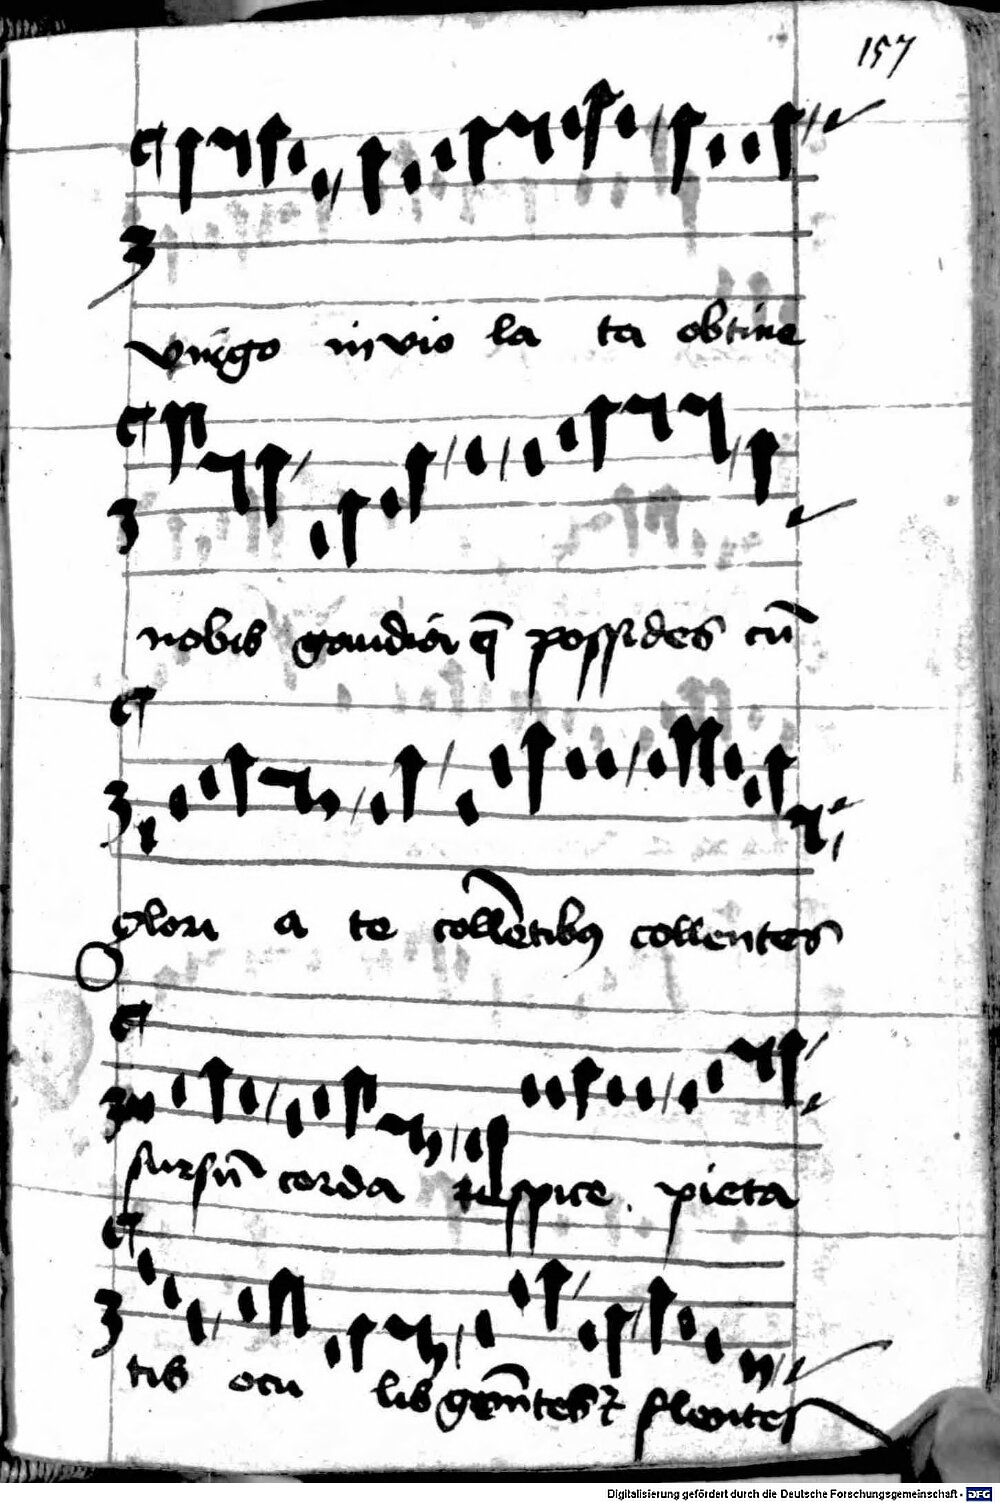 157
virgo invio la ta obtine
nobis gaudia q̄ possides cū
glori a te collētibꝰ collentes
sursū corda respice pieta
tis ocu lis gem̄tes & flentes
Digitalisierung gefördert durch die Deutsche Forschungsgemeinschaft - DFG